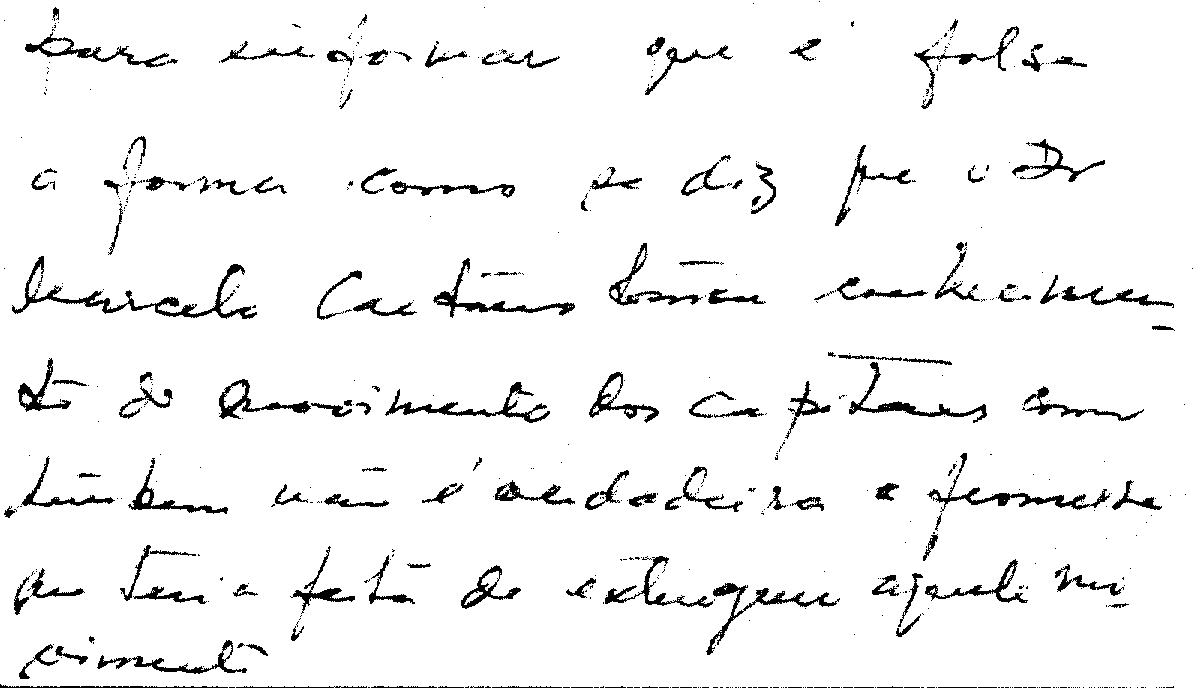 para informar que é falsa
a forma como se diz que o Dr
Marcelo Caetano tomou conhecimen-
to do movimento dos Capitães como
também não é verdadeira a promessa
que teria feito de extinguir aquele mo-
vimento